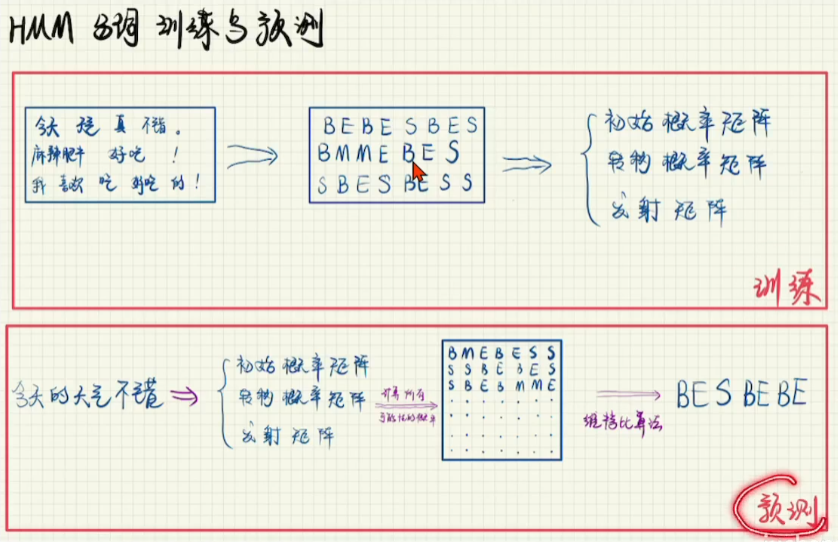 HMM 分词 训练与预测
今天 天气 真 不错 。
麻辣肥牛 好吃 !
我 喜欢 吃 好吃 的 !
B E B E S B E S
B M M E B E S
S B E S B E S S
初始 概率 矩阵
转移 概率 矩阵
发射 矩阵
训练
今天的天气不错
初始 概率 矩阵
转移 概率 矩阵
发射 矩阵
计算所有
可能性的概率
B M E B E S S
S S B E B E S
S B E B M M E
维特比算法
BE S BE BE
预测